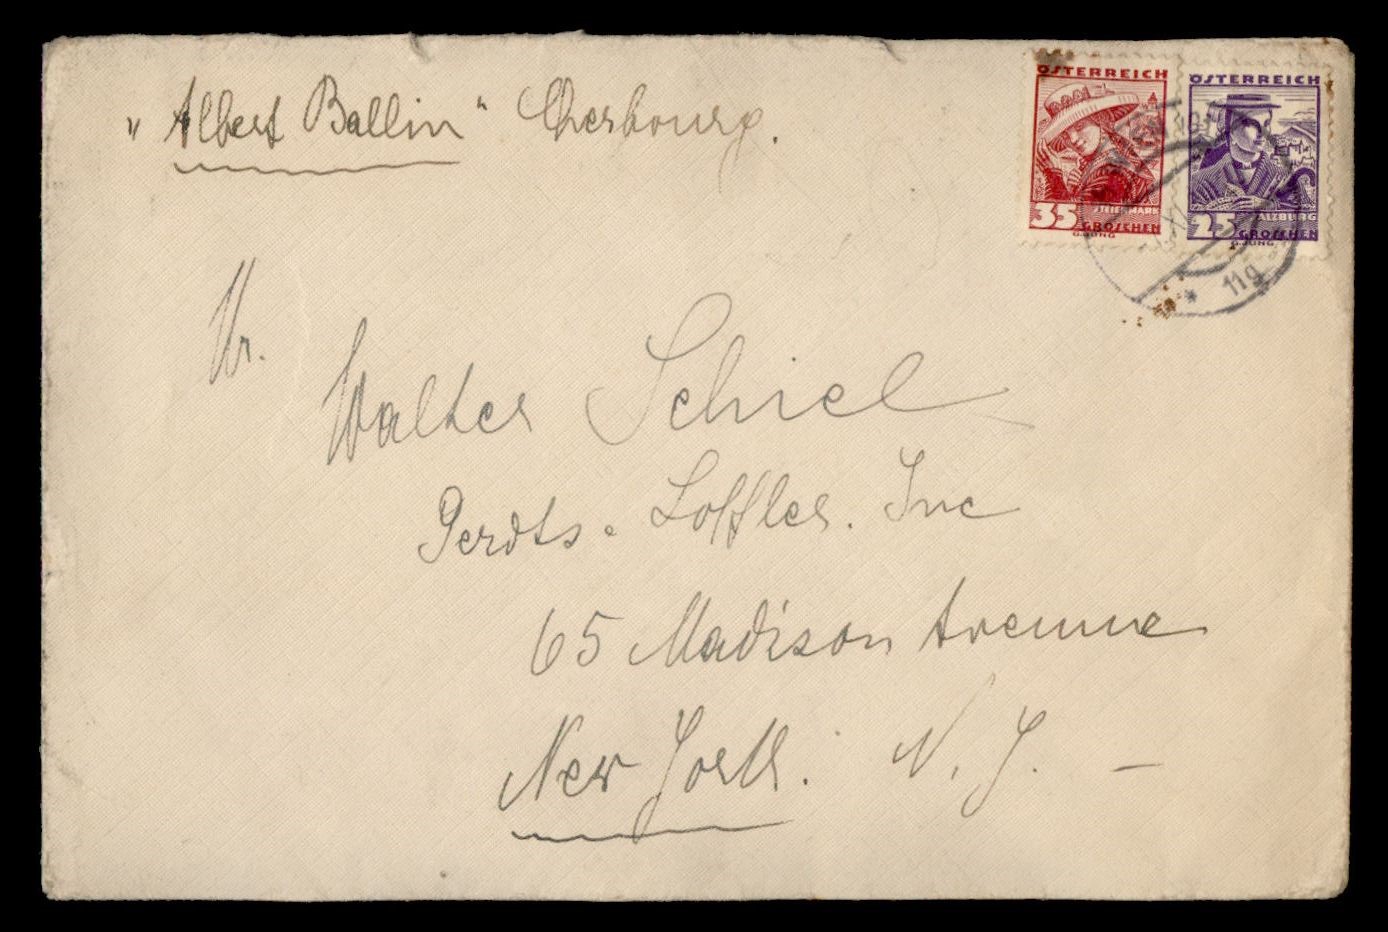 "Albert Ballin" Cherbourg.
ÖSTERREICH
35
STEIERMARK
GROSCHEN
G.JUNG
ÖSTERREICH
25
SALZBURG
GROSCHEN
G.JUNG
XI
* 11g
Mr.
Walter Schiel
Perdts. Loffler. Inc
65 Madison Avenue
New York. N. Y. -